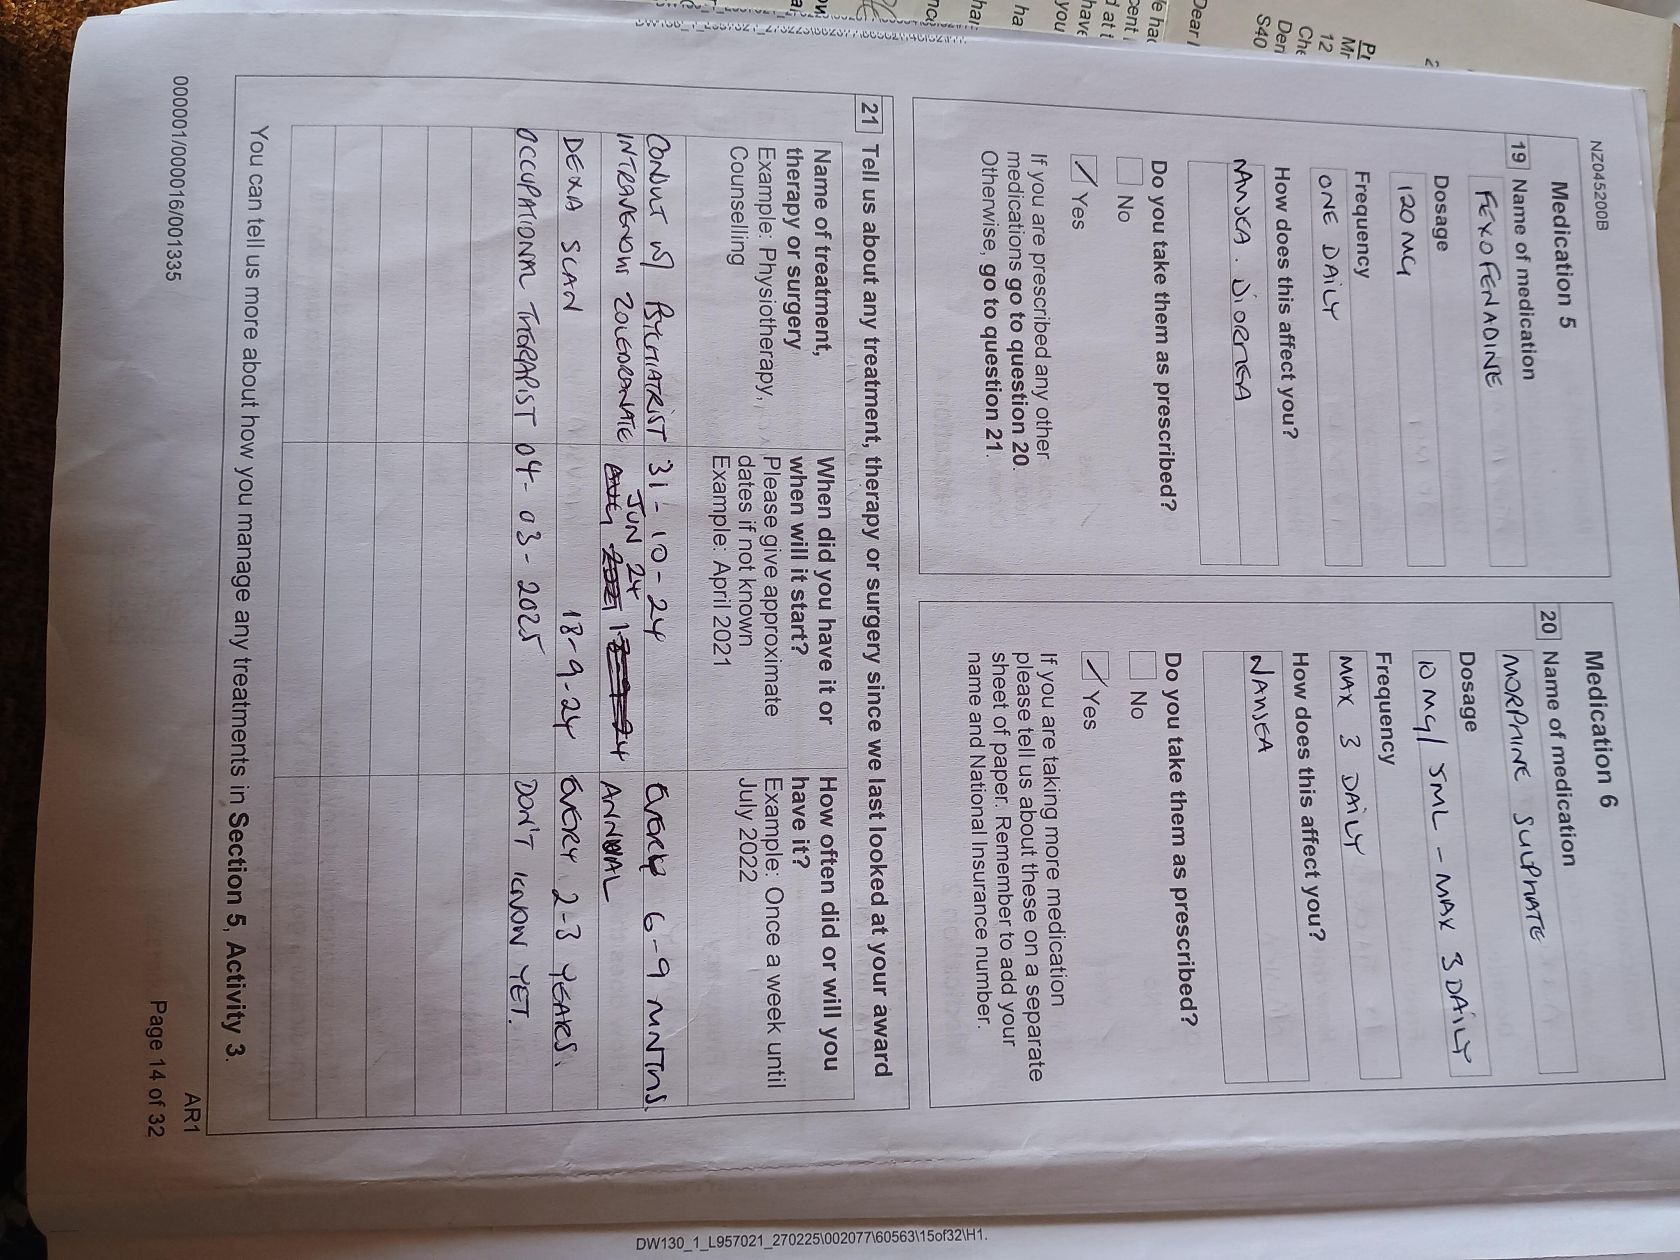 NZ045200B
Medication 5
19 Name of medication
FEXOFENADINE
Dosage
120 MG
Frequency
ONE DAILY
How does this affect you?
NAUSEA. DIORREA
Do you take them as prescribed?
No
Yes
If you are prescribed any other
medications go to question 20.
Otherwise, go to question 21.
Medication 6
20 Name of medication
MORPHINE SULPHATE
Dosage
10 Mg/ 5ML - MAX 3 DAILY
Frequency
MAX 3 DAILY
How does this affect you?
NAUSEA
Do you take them as prescribed?
No
Yes
If you are taking more medication
please tell us about these on a separate
sheet of paper. Remember to add your
name and National Insurance number.
21 Tell us about any treatment, therapy or surgery since we last looked at your award
Name of treatment,
therapy or surgery
Example: Physiotherapy,
Counselling
When did you have it or
when will it start?
Please give approximate
dates if not known
Example: April 2021
How often did or will you
have it?
Example: Once a week until
July 2022
CONSULT PSYCHIATRIST 31-10-24 EVERY 6-9 MNTHS.
INTRAVENOUS ZOLEDRANATE JUN 24 ANNUAL
DEXA SCAN 18-9-24 EVERY 2-3 YEARS.
OCCUPATIONAL THERAPIST 04-03-2025 DON'T KNOW YET.
You can tell us more about how you manage any treatments in Section 5, Activity 3.
000001/000016/001335
AR1
Page 14 of 32
DW130_1_L957021_270225\002077\60563\15of32\H1.